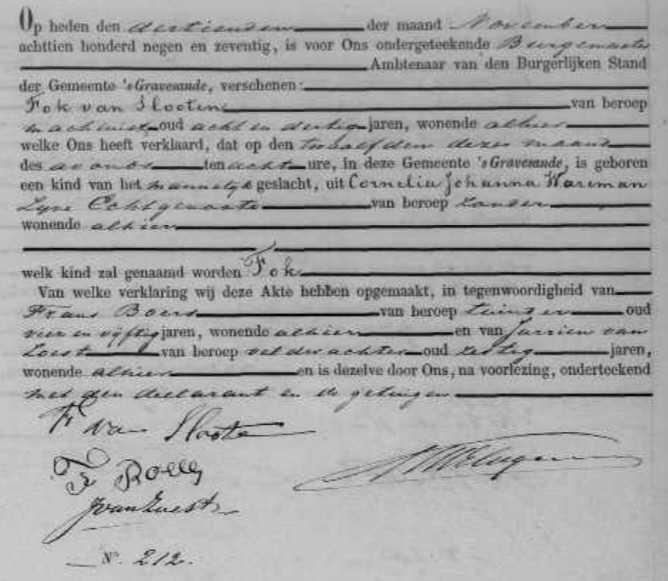 Op heden den dertienden der maand November
achttien honderd negen en zeventig, is voor Ons ondergeteekende Burgemeester
Ambtenaar van den Burgerlijken Stand
der Gemeente 's Gravesande, verschenen:
Fok van Slooten van beroep
machinist oud acht en dertig jaren, wonende alhier
welke Ons heeft verklaard, dat op den twaalfden dezer maand
des avonds ten acht ure, in deze Gemeente 's Gravesande, is geboren
een kind van het mannelijk geslacht, uit Cornelia Johanna Wareman
Zijne Echtgenoote van beroep zonder
wonende alhier
welk kind zal genaamd worden Fok
Van welke verklaring wij deze Akte hebben opgemaakt, in tegenwoordigheid van
Frans Boers van beroep tuinder oud
vier en vijftig jaren, wonende alhier en van Jurrien van
Zoest van beroep veldwachter oud zestig jaren,
wonende alhier en is dezelve door Ons, na voorlezing, onderteekend
met den declarant en de getuigen
F van Slooten
F Boers
J van Zoest
No. 212.